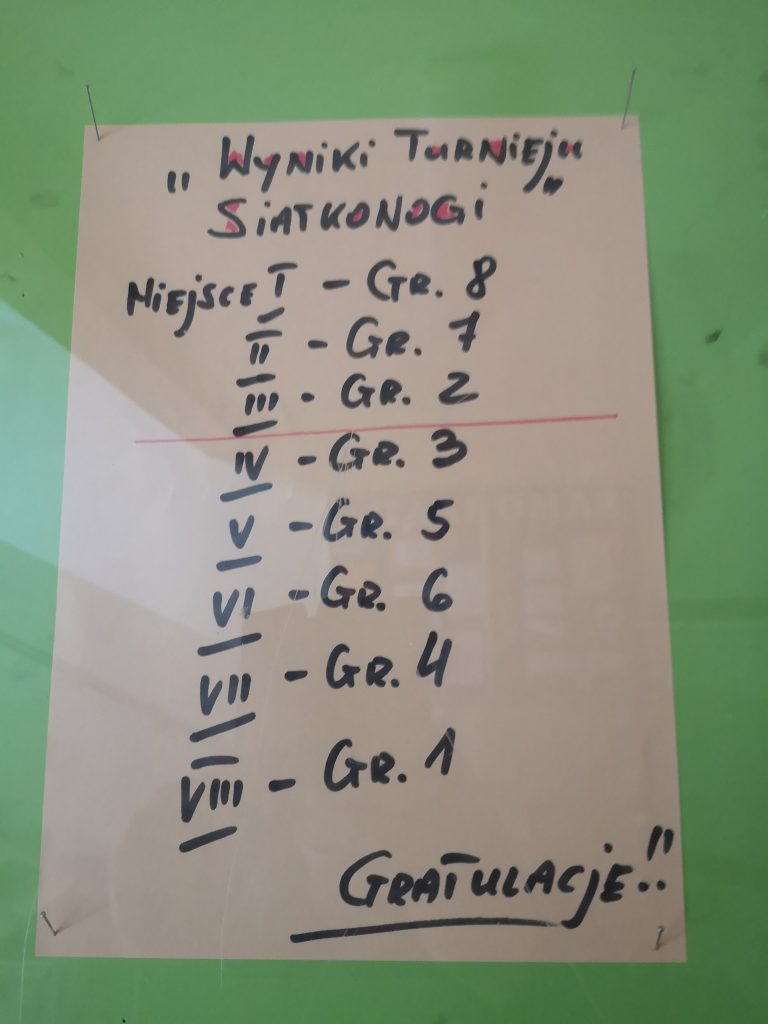 „ Wyniki Turnieju
Siatkonogi ”
Miejsce I – Gr. 8
II – Gr. 7
III – Gr. 2
IV – Gr. 3
V – Gr. 5
VI – Gr. 6
VII – Gr. 4
VIII – Gr. 1
Gratulacje!!